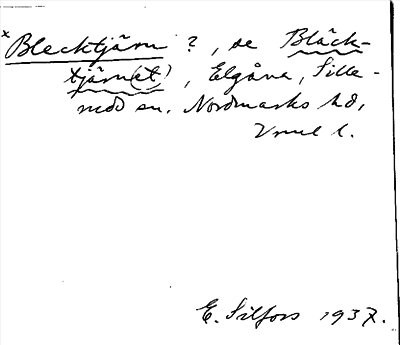 x Blecktjärn ?, se Bläck-
tjärn(et), Elgåna, Sille-
ruds sn. Nordmarks hd,
Vrml l.
E. Silfors 1937.